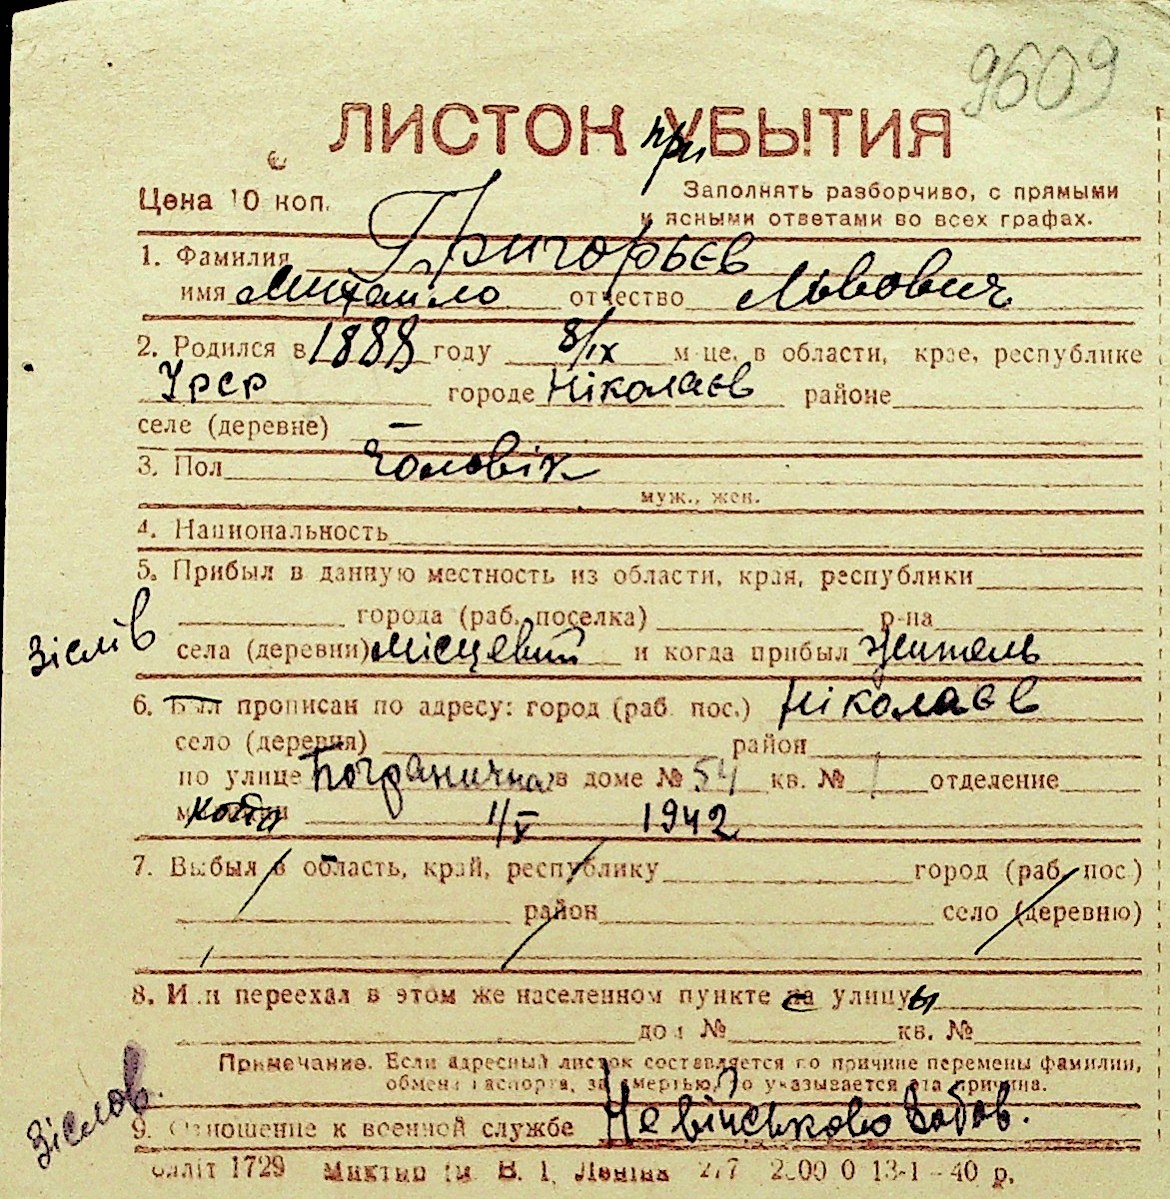 9609
ЛИСТОК при УБЫТИЯ
Цена 10 коп.
Заполнять разборчиво, с прямыми
и ясными ответами во всех графах.
1. Фамилия Григорьєв
имя Михайло отчество Львович
2. Родился в 1888 году 8/IX м-це, в области, крае, республике
УРСР городе Ніколаєв районе
селе (деревне) —
3. Пол Чоловік
муж., жен.
4. Национальность
5. Прибыл в данную местность из области, края, республики
города (раб. поселка) р-на
Зіслів села (деревни) місцевий и когда прибыл житель
6. Был прописан по адресу: город (раб. пос.) Ніколаєв
село (деревня) район
по улице Погранична в доме № 54 кв. № 1 отделение
1/V 1942
7. Выбыл в область, край, республику город (раб. пос.)
район село (деревню)
8. Или переехал в этом же населенном пункте с улицы
дом № кв. №
Примечание. Если адресный листок составляется по причине перемены фамилии,
обмена паспорта, за смертью, то указывается эта причина.
Зіслов.
9. Отношение к военной службе Не військовозобов.
1729 им. В. І. Леніна 13-1-40 р.